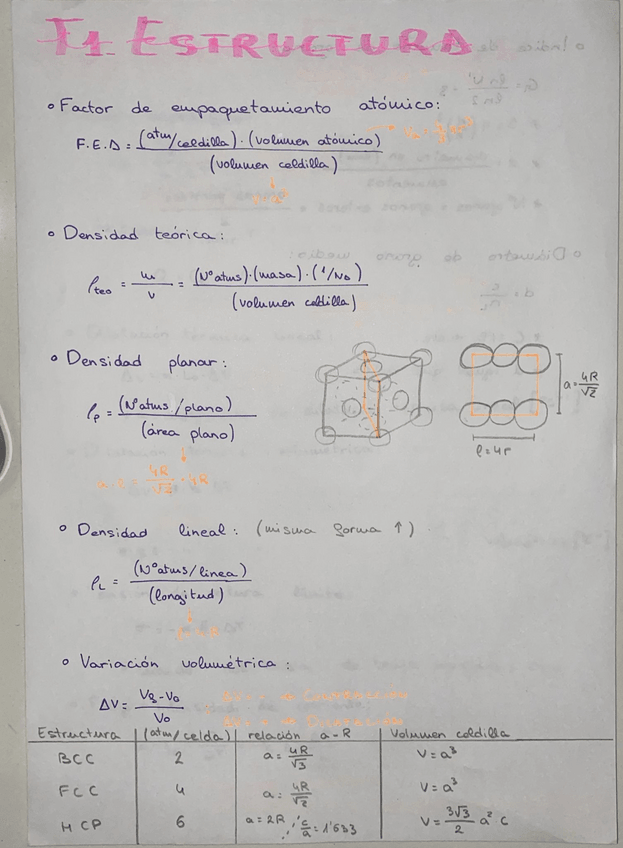 T1 ESTRUCTURA
• Factor de empaquetamiento atómico:
F.E.A = (atm/celdilla) · (volumen atómico)
(volumen celdilla)
• Densidad teórica:
ρteo = m/v = (Nº atms)·(masa)·(1/NA)
(volumen celdilla)
• Densidad planar:
ρp = (Nº atms/plano)
(área plano)
a · l = 4R/√2 · 4R
a = 4R/√2
l = 4r
• Densidad lineal: (misma forma ↑)
ρL = (Nº atms/línea)
(longitud)
• Variación volumétrica:
ΔV = Vf - Vo
Vo
Estructura | (atm/celda) | relación a-R | Volumen celdilla
BCC | 2 | a = 4R/√3 | V = a³
FCC | 4 | a = 4R/√2 | V = a³
HCP | 6 | a = 2R ; c/a = 1'633 | V = 3√3/2 a² c